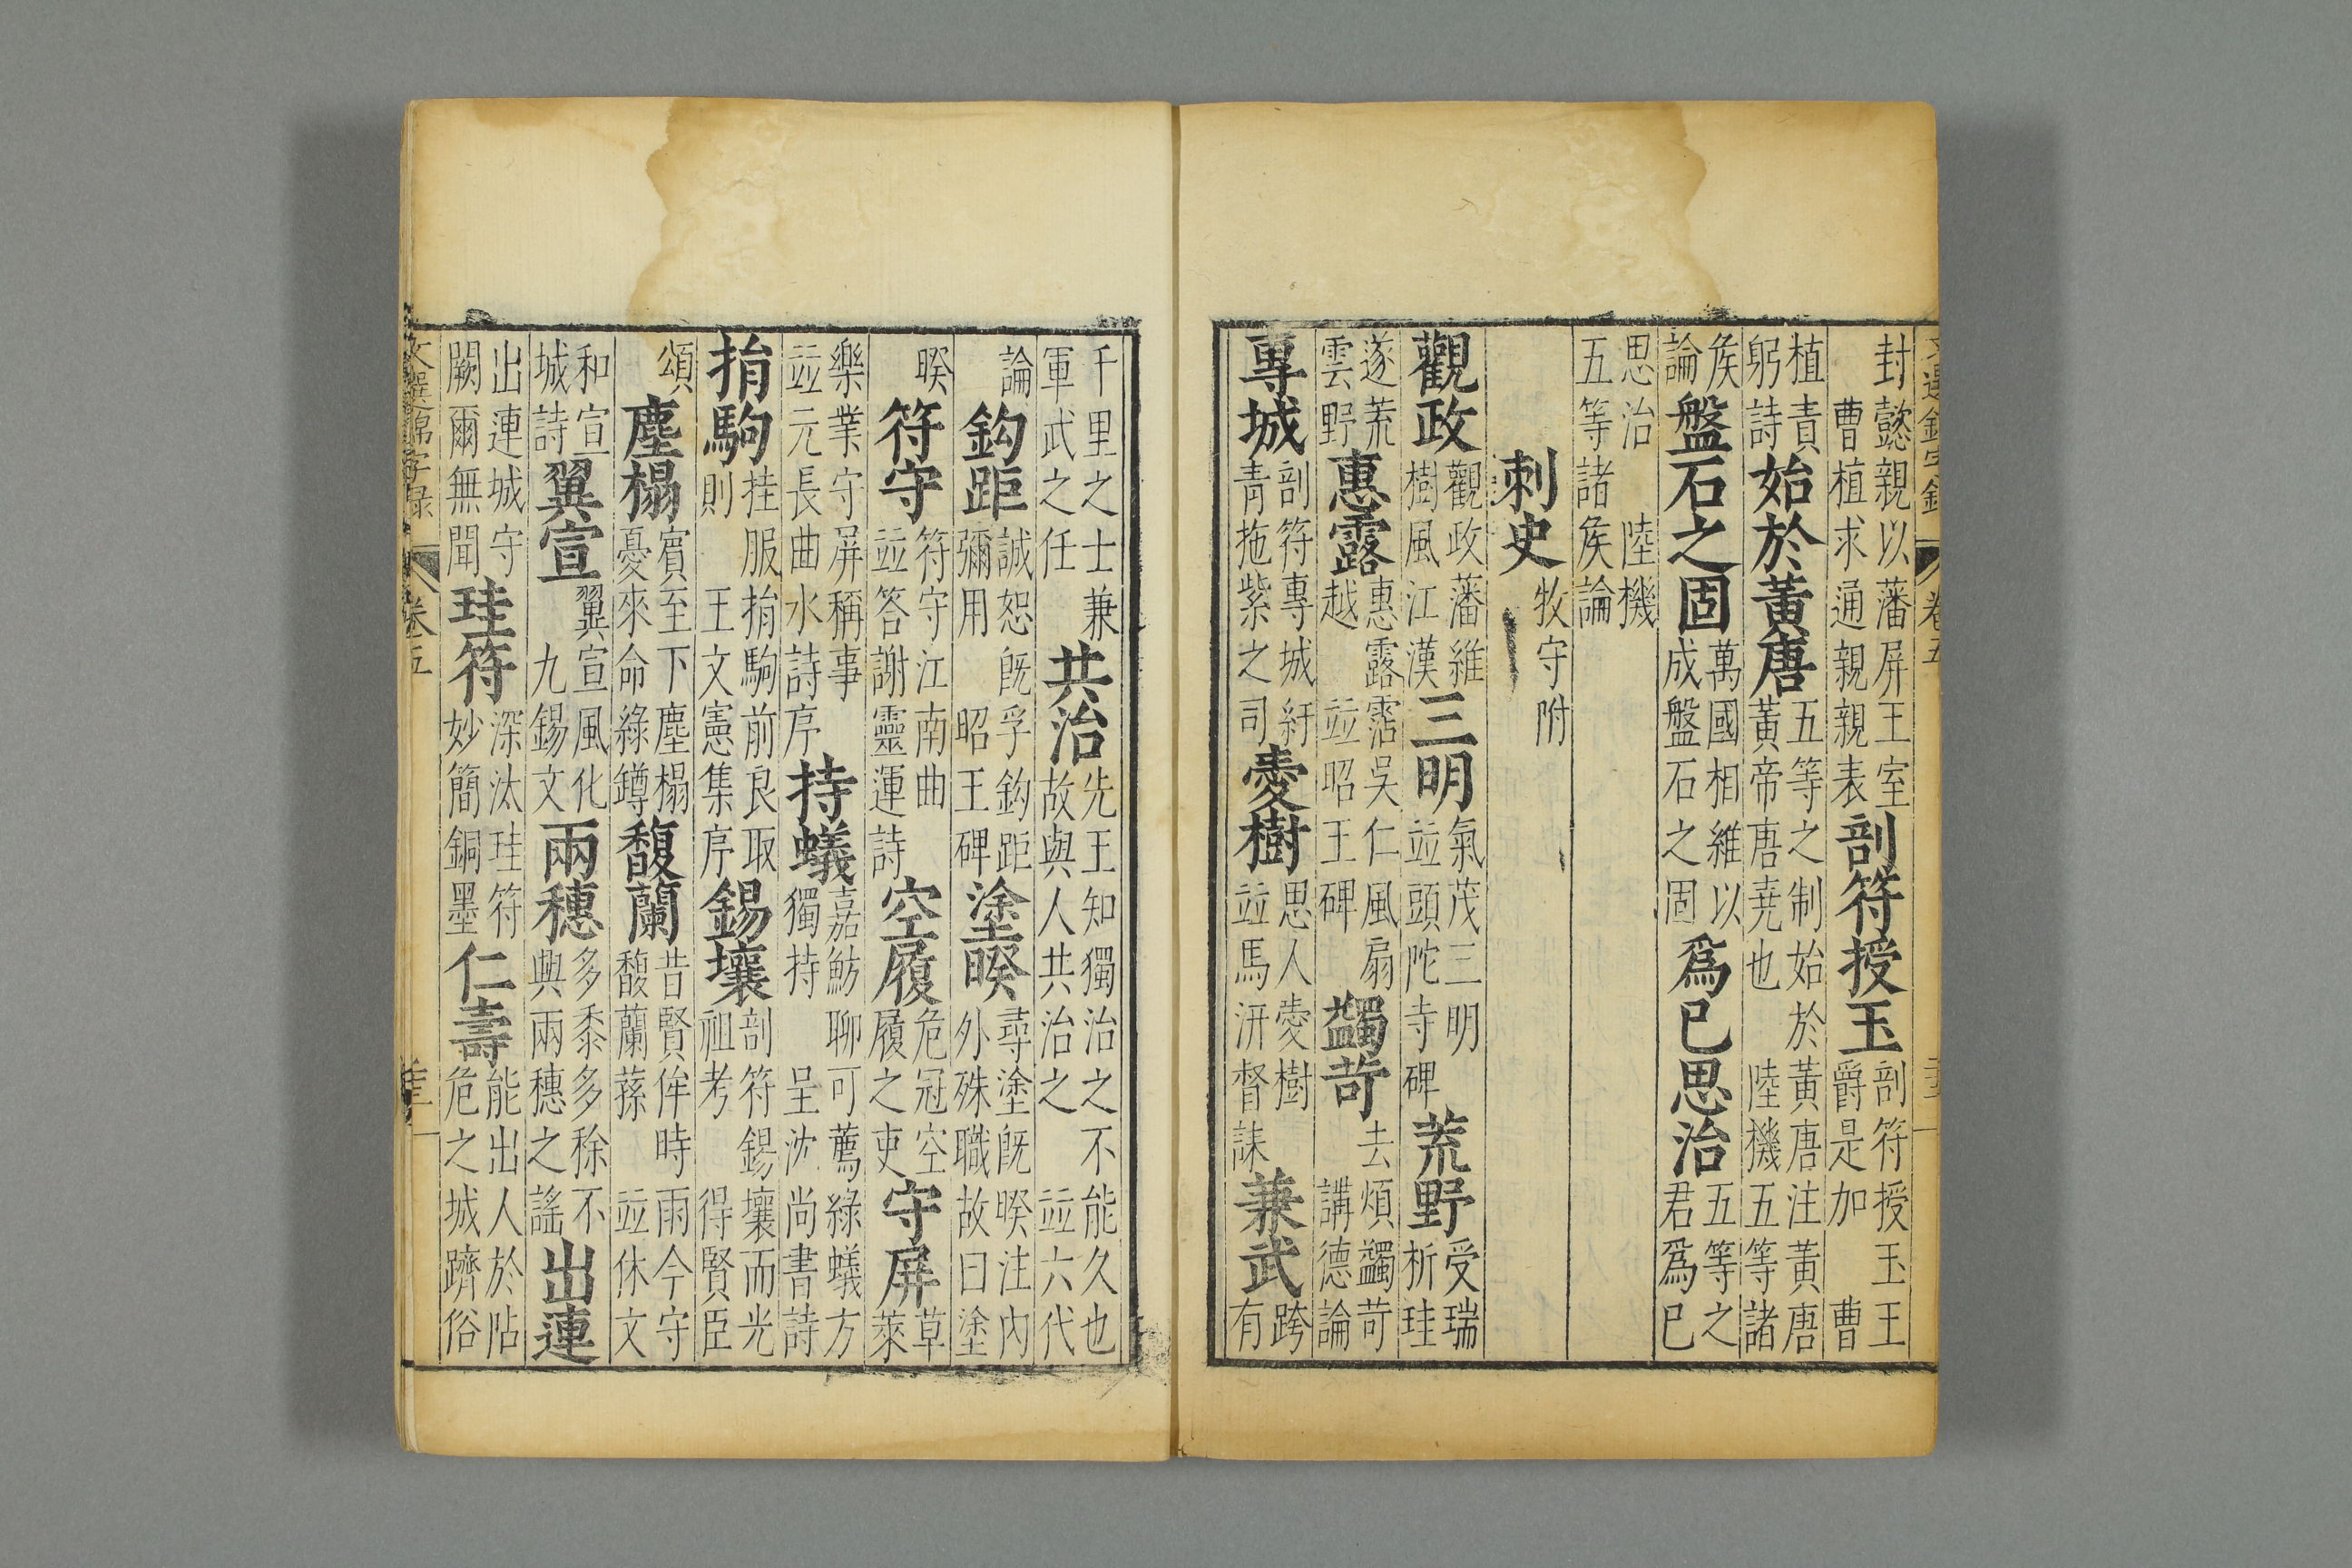 封懿親以藩屏王室
曹植求通親親表
剖符授玉
剖符授玉王
爵是加　曹
植責
躬詩
始於黃唐
五等之制始於黃唐注黃唐
黃帝唐堯也　陸機五等諸
矦
論
盤石之固
萬國相維以
成盤石之固
爲已思治
五等之
君爲已
思治　陸機
五等諸矦論
刺史
牧守附
觀政
觀政藩維
樹風江漢
三明
氣茂三明
竝頭陀寺碑
荒野
受瑞
析珪
遂荒
雲野
惠露
惠露霑吳仁風扇
越　竝昭王碑
蠲苛
去煩蠲苛
講德論
專城
剖符專城紆
青拖紫之司
愛樹
思人愛樹
竝馬汧督誄
兼武
跨
有
千里之士兼
軍武之任
共治
先王知獨治之不能久也
故與人共治之　竝六代
論
鈎距
誠恕旣孚鈎距
彌用　昭王碑
塗暌
尋塗旣暌注內
外殊職故曰塗
暌
符守
符守江南曲
竝荅謝靈運詩
空履
危冠空
履之吏
守屏
草
萊
樂業守屏稱事
竝元長曲水詩序
持蟻
嘉魴聊可薦綠蟻方
獨持　呈沈尚書詩
捐駒
挂服捐駒前良取
則　王文憲集序
錫壤
剖符錫壤而光
祖考　得賢臣
頌
塵榻
賓至下塵榻
憂來命綠鐏
馥蘭
昔賢侔時雨今守
馥蘭蓀　竝休文
和宣
城詩
翼宣
翼宣風化
九錫文
兩穗
多黍多稌不
與兩穗之謠
出連
出連城守
闕爾無聞
珪符
深汰珪符
妙簡銅墨
仁壽
能出人於阽
危之城躋俗
卷五